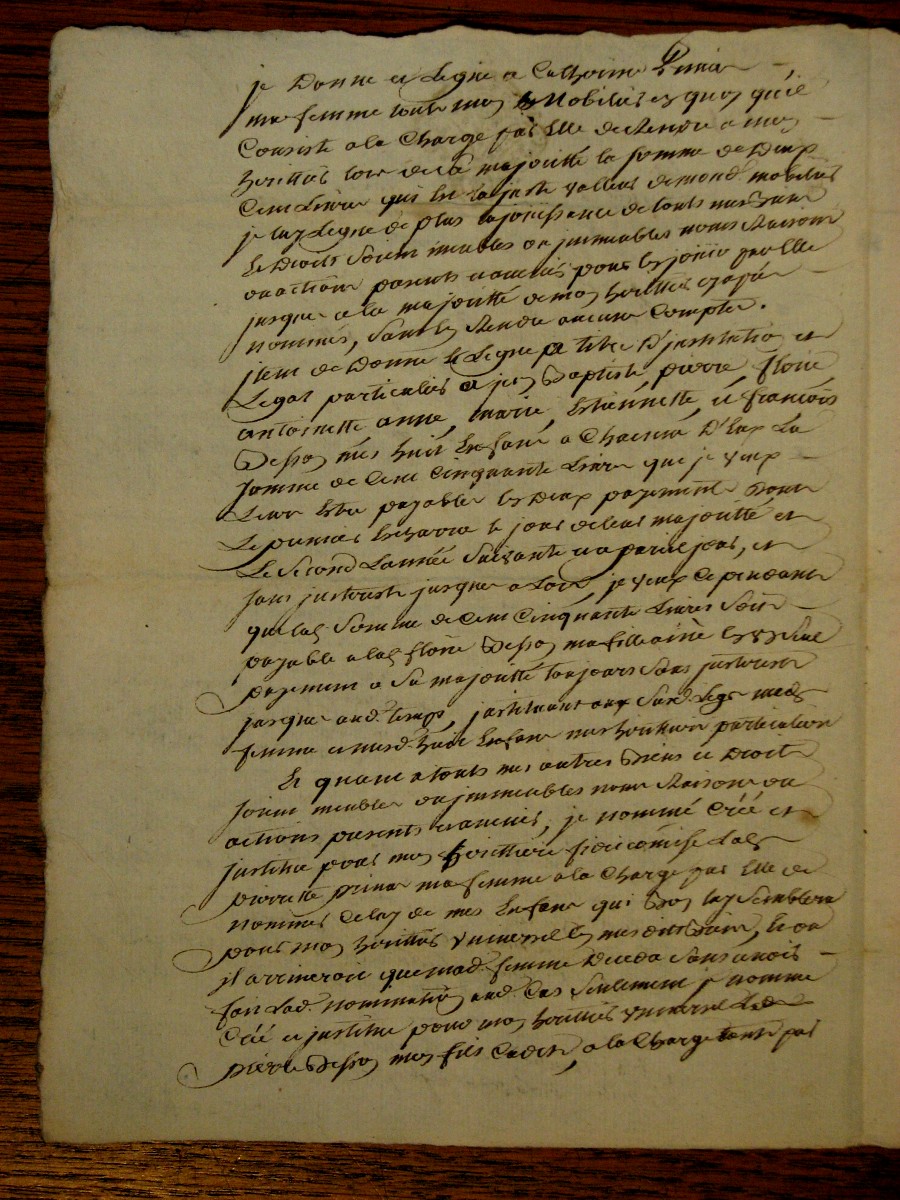 je Donne et Legue a Catherine
ma femme touts mon Mobiliés en quoy qu'il
Consiste a la Charge par Elle de Rendre a mon
heritiés lors de sa majoritté la somme de Deux
Cent Livres qui Est la juste valleur de mond. mobiliés
je luy Legue de plus la jouissance de touts mes biens
Et Droits Soient meubles ou immeubles noms Raisons
ou actions presents et avenir pour En jouir par Elle
jusques a la majoritté de mon heritiés cy apres
nommés, Sans En Rendre aucuns Comptes.
item je Donne Et Legue a titre D'institution et
Legat particuliés a jean Baptiste, pierre, florie
antoinette anne, marie, Estiennette, et françois
mes huit Enfans a Chacun D'Eux La
somme de Cent Cinquante Livres que je veux
Leur Etre payables En Deux payements Dont
Le premier Echerra le jour de leur majoritté et
Le Second L'année Suivante a pareil jour, et
sans interest jusques a Lors, je veux Cependant
que lad. Somme de Cent Cinquante Livres Soit
payable a lad. florie ma fille ainé En un Seul
payement a Sa majoritté toujours Sans interest
jusques aud. temps, instituant aux Susd. Legs mad.
femme et mesd. huit Enfans mes heritiers particuliers
Et quant a touts mes autres Biens et Droits
soient meubles ou immeubles noms Raisons ou
actions presents et avenir, je nomme Créé et
institue pour mon heritiere fideicomise Lad.
pierrette ma femme a la Charge par Elle de
nommer Celuy de mes Enfans qui Bon luy Semblera
pour mon heritiés universel En mesdits Biens, Et ou
il arriveroit que mad. femme Deceda Sans avoir
fait Lad. nomination aud. Cas Seulement je nomme
Créé et institue pour mon heritiés universel Led.
pierre mon fils Cadet, a la Charge tant par